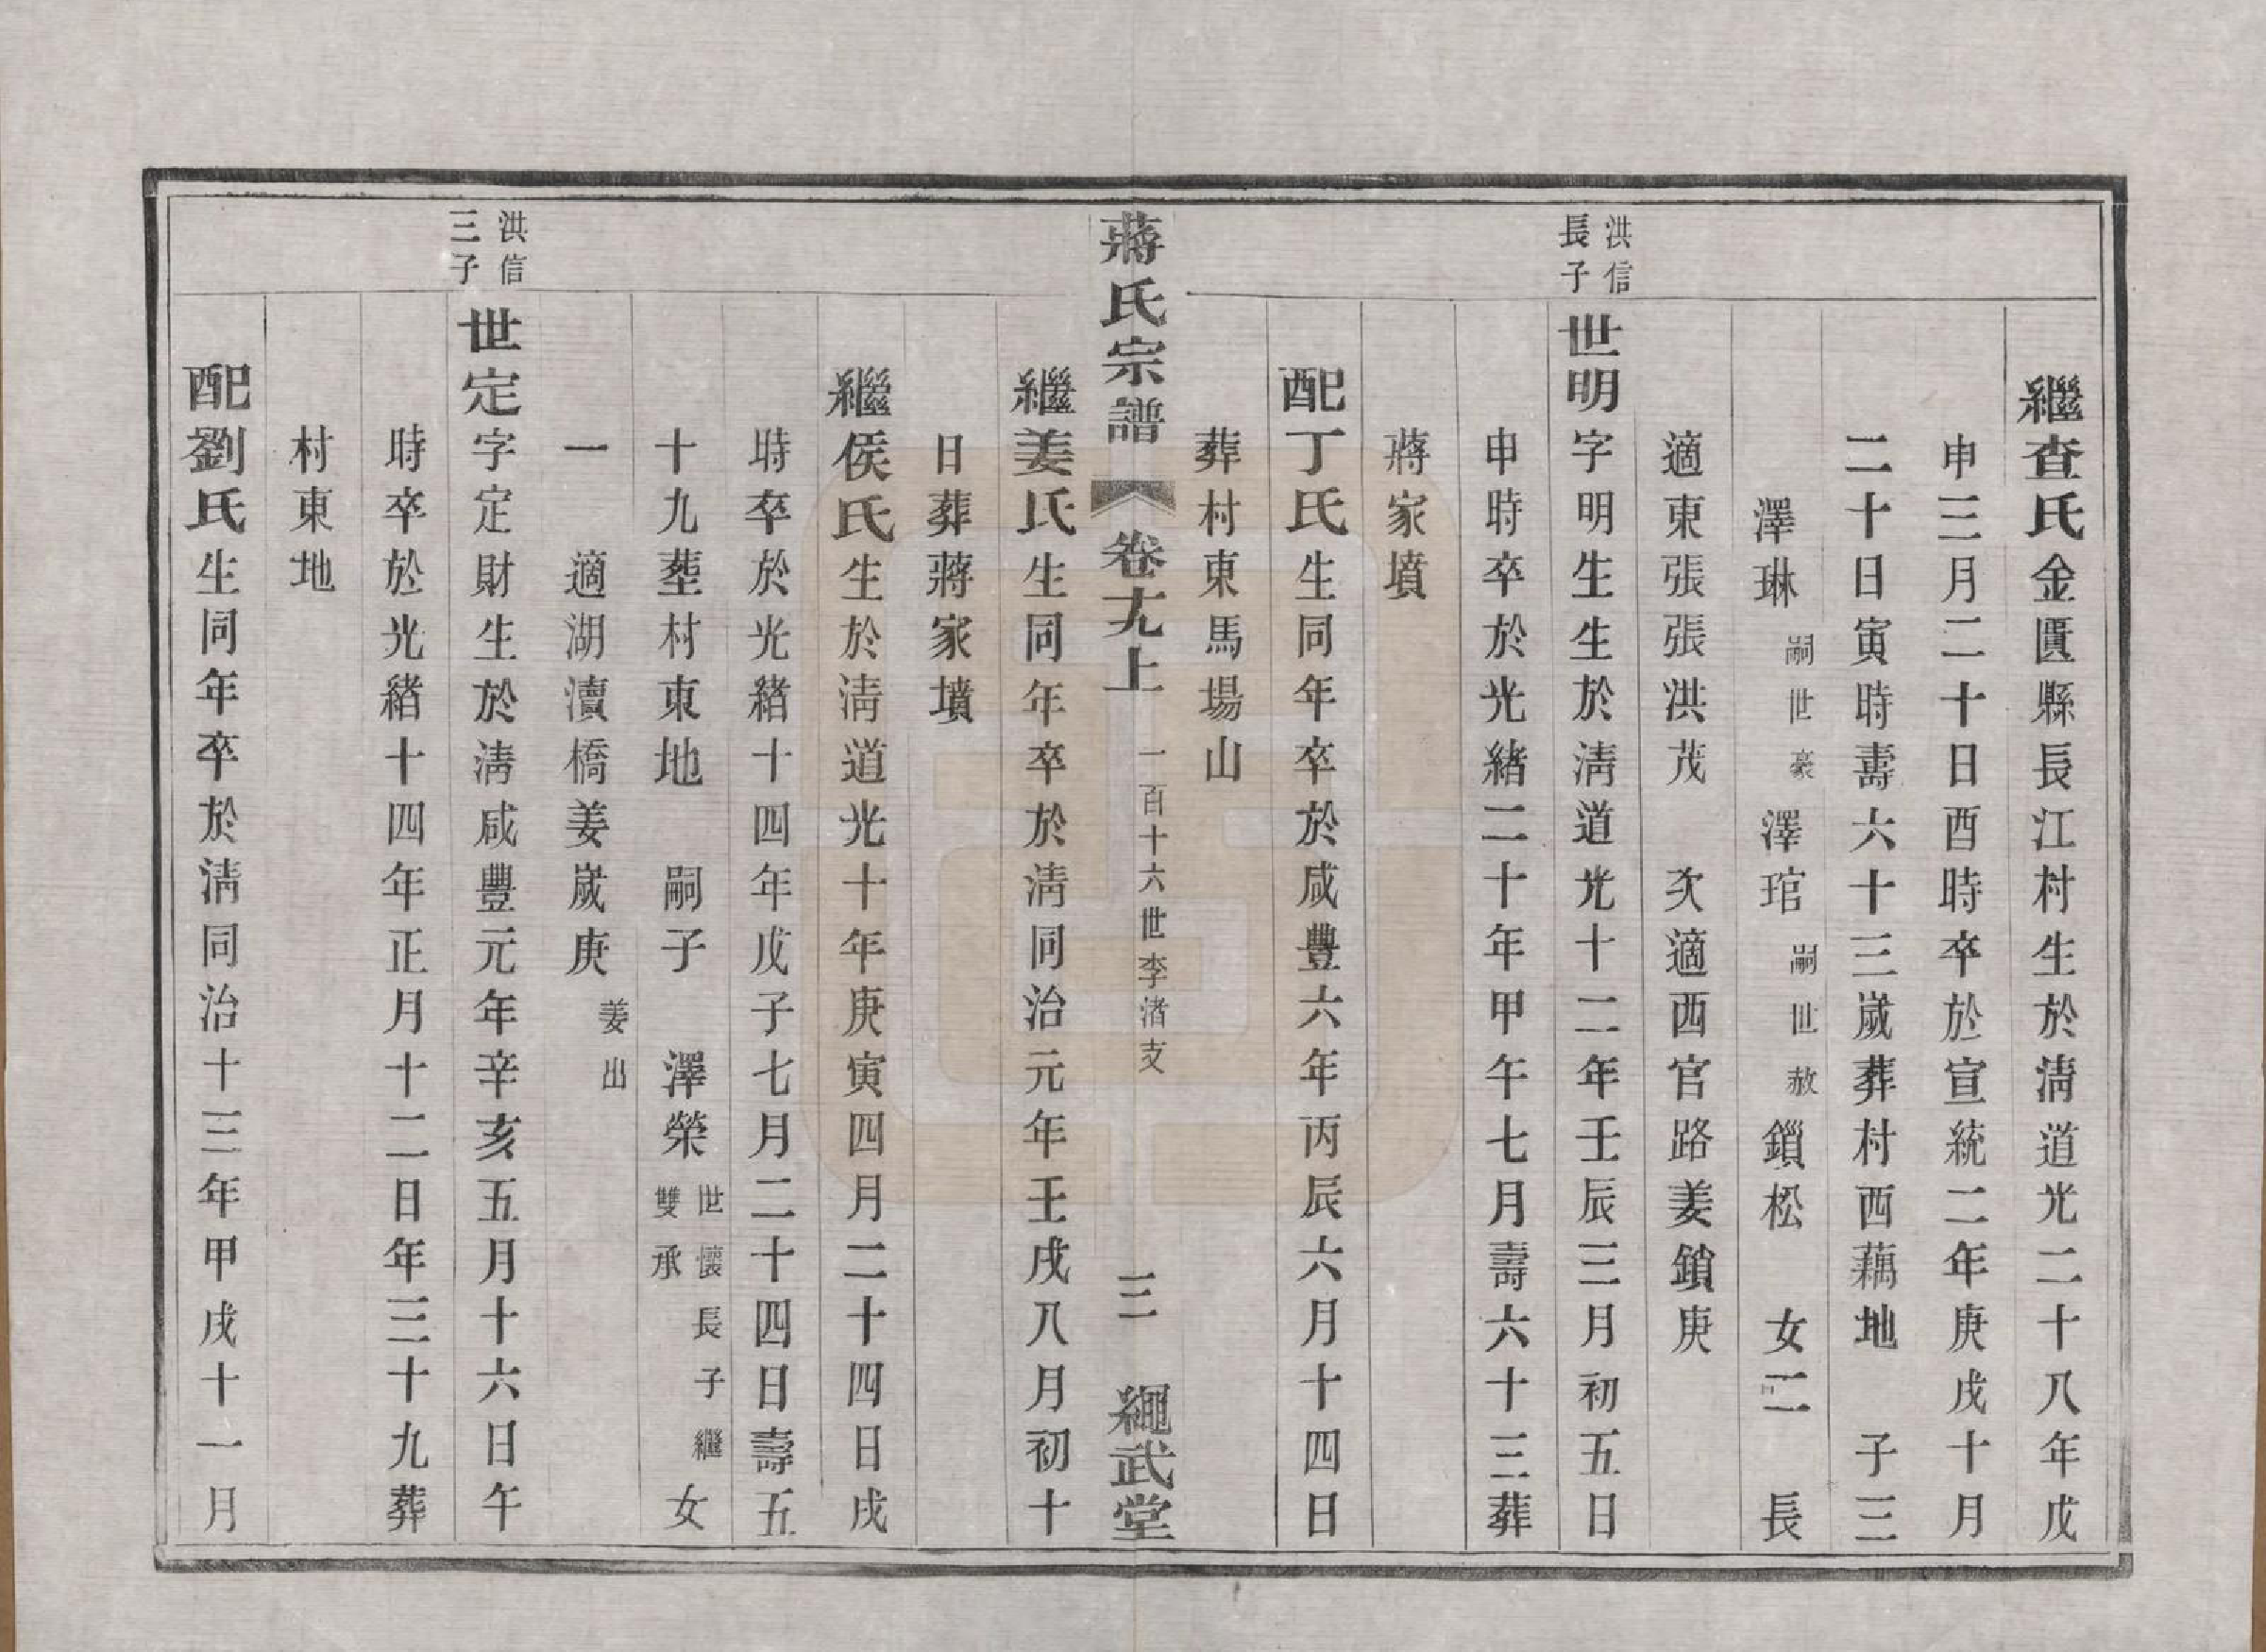 繼查氏金匱縣長江村生於淸道光二十八年戊
申三月二十日酉時卒於宣統二年庚戌十月
二十日寅時壽六十三歲葬村西藕地　子三
澤琳嗣世豪澤琯嗣世赦鎻松　女二　長
適東張張洪茂　次適西官路姜鎖庚
洪信長子
世明字明生生於淸道光十二年壬辰三月初五日
申時卒於光緒二十年甲午七月壽六十三葬
蔣家墳
配丁氏生同年卒於咸豐六年丙辰六月十四日
葬村東馬場山
蔣氏宗譜　卷九上　一百十六世李渚支　三　繩武堂
繼姜氏生同年卒於淸同治元年壬戌八月初十
日葬蔣家墳
繼侯氏生於淸道光十年庚寅四月二十四日戌
時卒於光緒十四年戊子七月二十四日壽五
十九塟村東地　嗣子　澤榮世懷長子繼雙承女
一　適湖瀆橋姜歲庚姜出
洪信三子
世定字定財生於淸咸豐元年辛亥五月十六日午
時卒於光緒十四年正月十二日年三十九葬
村東地
配劉氏生同年卒於淸同治十三年甲戌十一月